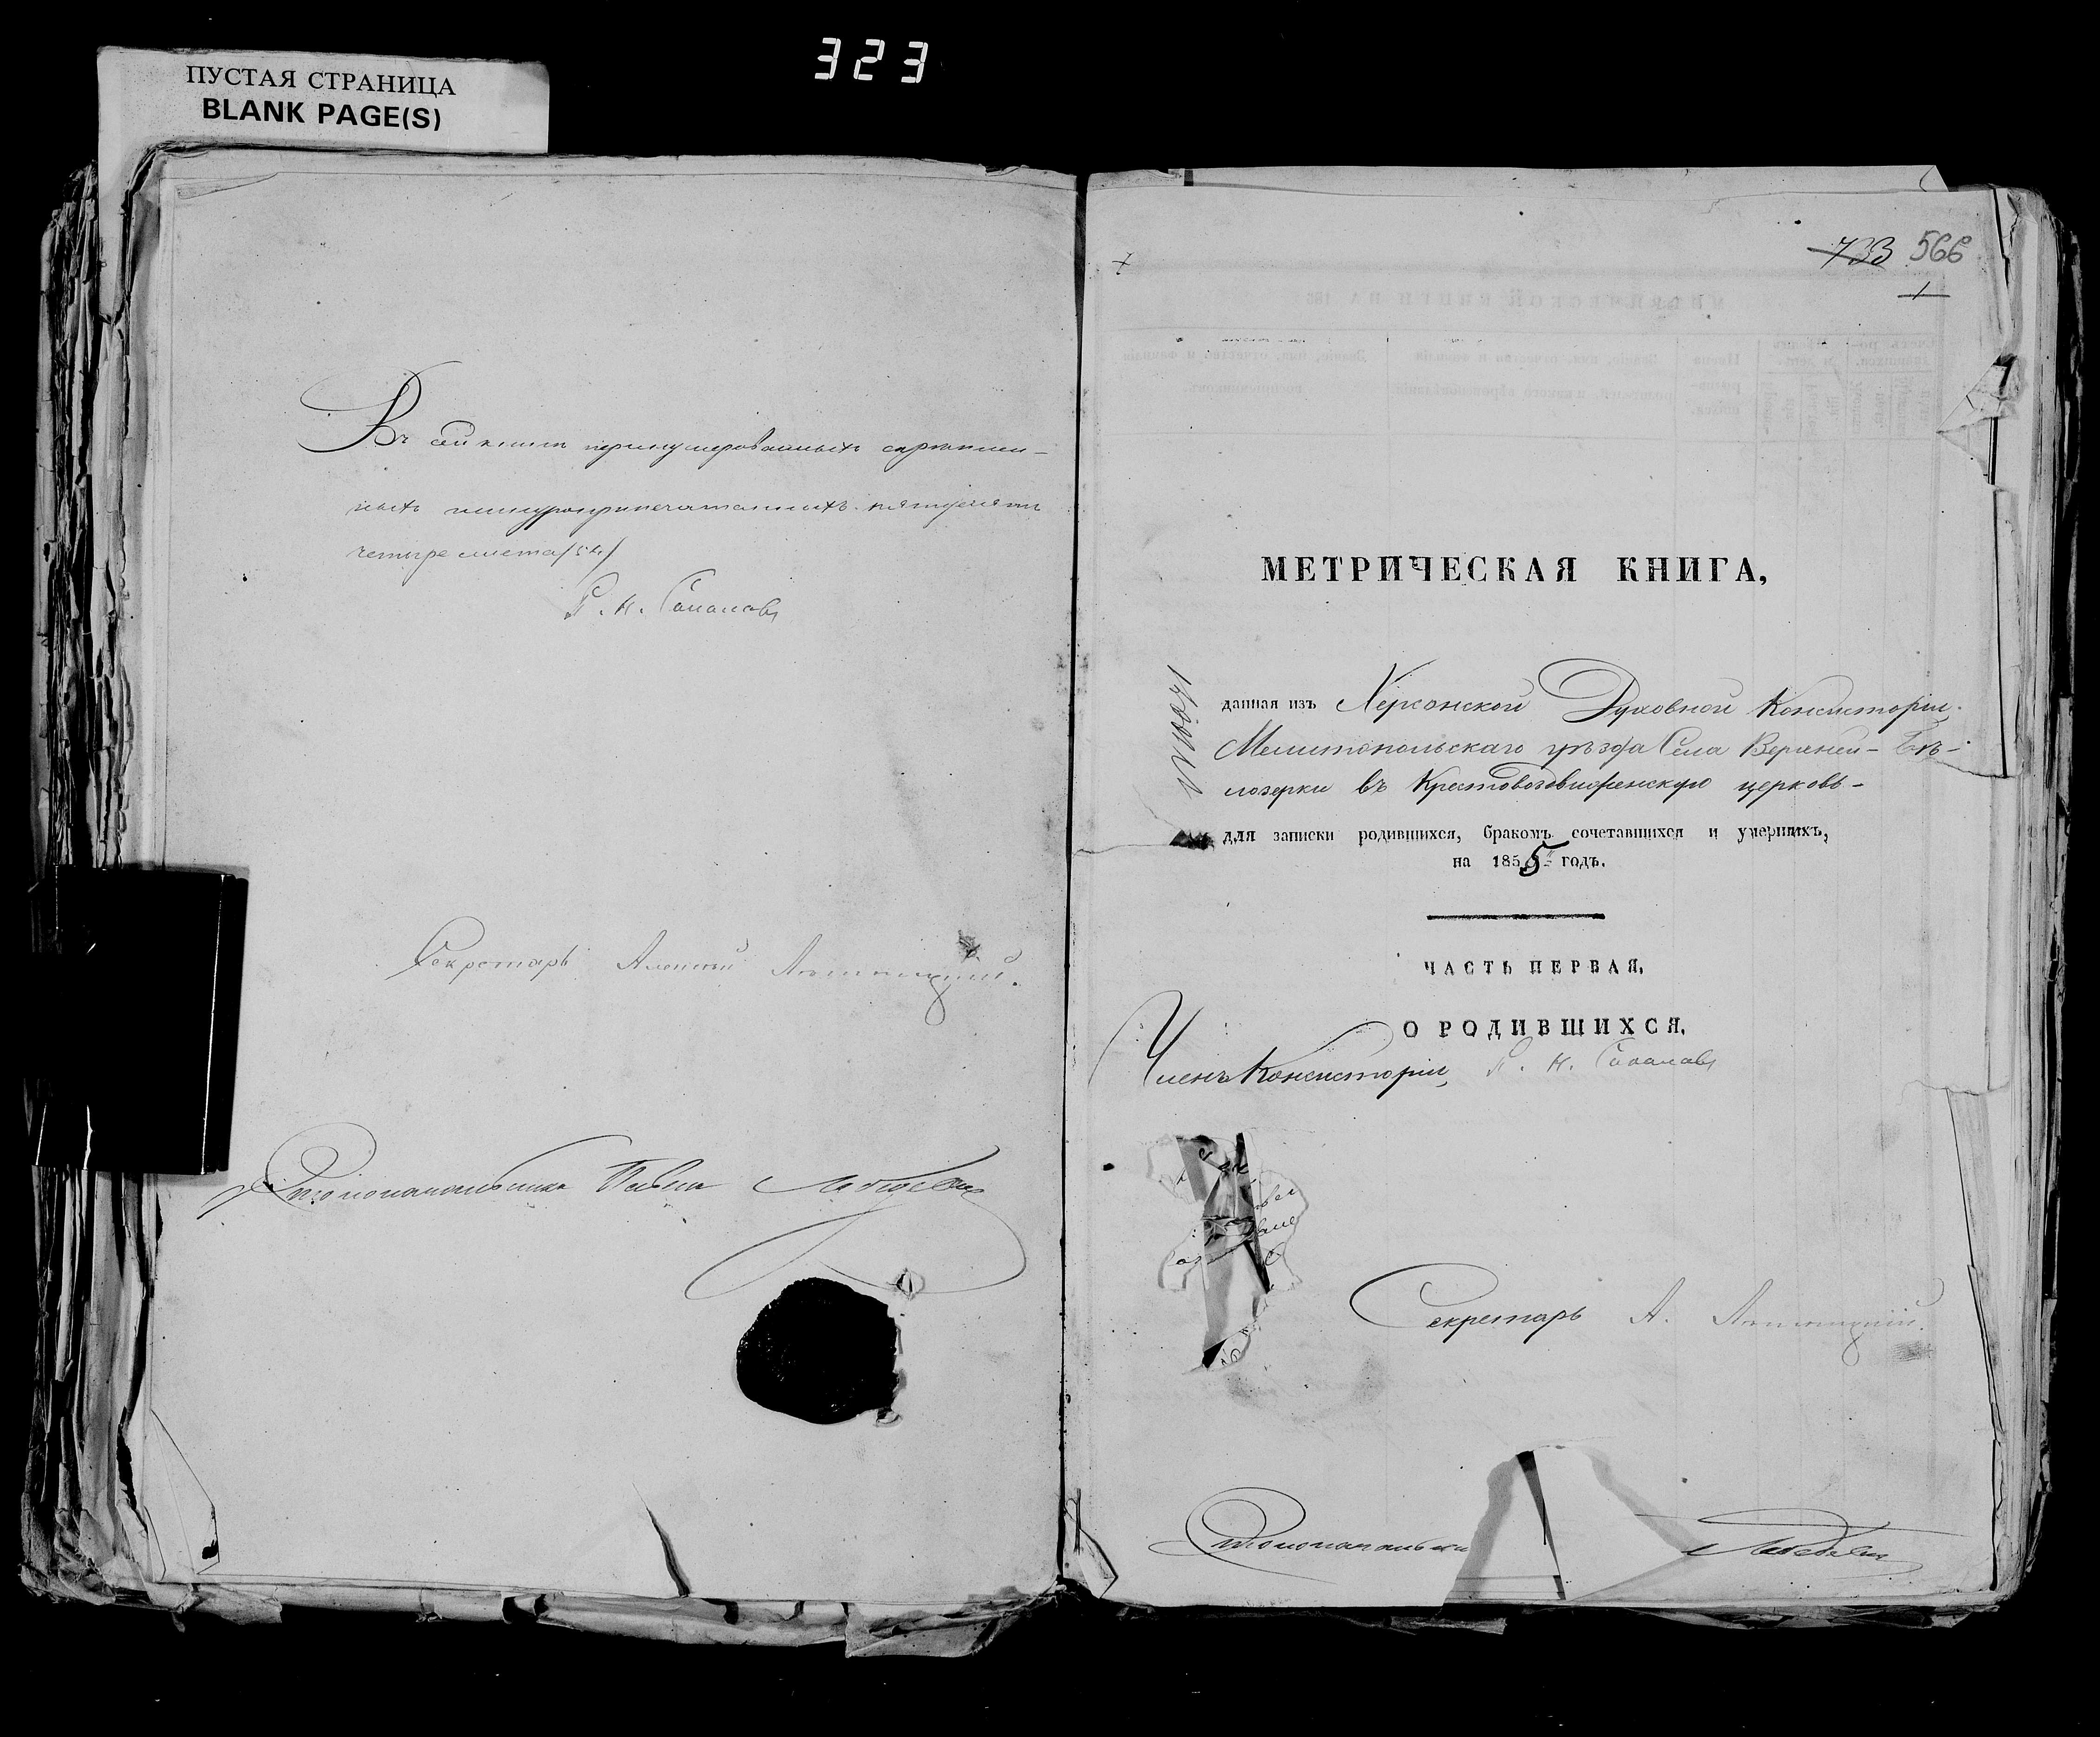 323
ПУСТАЯ СТРАНИЦА
BLANK PAGE(S)
Въ сей книгѣ перенумерованныхъ скрѣплен-
ныхъ шнуроприпечатанныхъ пятьдесятъ
четыре листа (54)
Секретарь Алексѣй
Столоначальникъ Павелъ Лебедевъ
733 566
1
МЕТРИЧЕСКАЯ КНИГА,
данная изъ Херсонской Духовной Консисторіи,
Мелитопольскаго уѣзда Села Верхней-Бѣ-
лозерки въ Крестовоздвиженскую церковь-
для записки родившихся, бракомъ сочетавшихся и умершихъ,
на 1855 годъ.
ЧАСТЬ ПЕРВАЯ,
О РОДИВШИХСЯ.
Членъ Консисторіи,
Секретарь А.
Столоначальни Лебедевъ